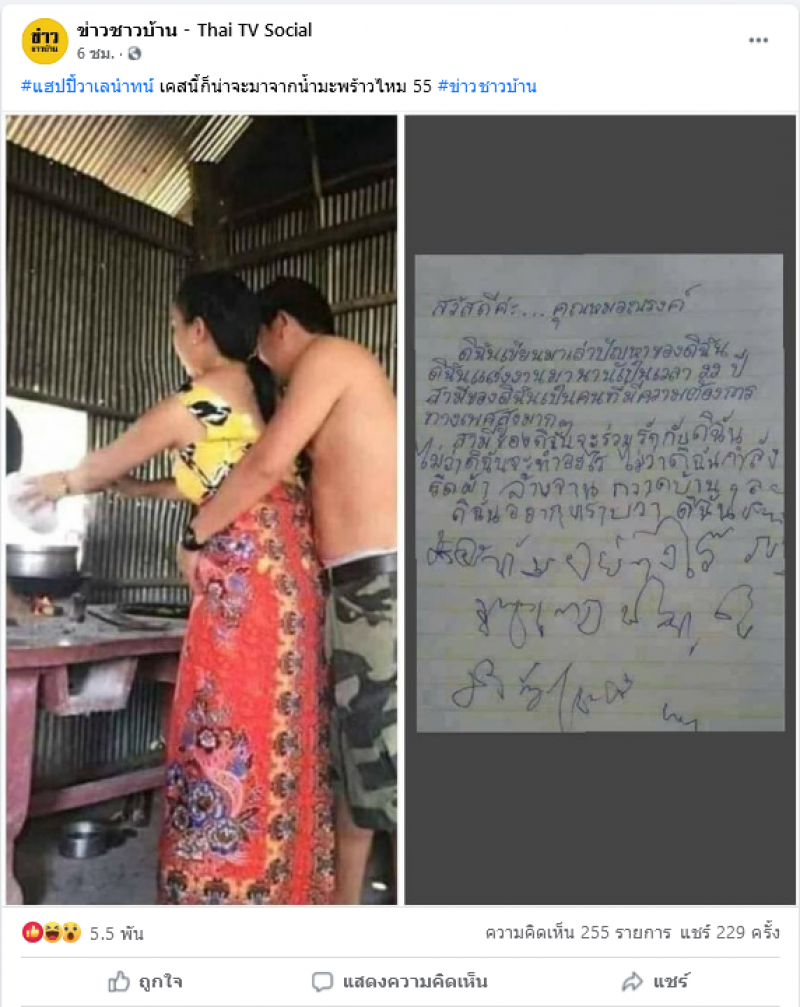 ข่าว
ชาวบ้าน
ข่าวชาวบ้าน - Thai TV Social
6 ชม. ·
#แฮปปี้วาเลนำทน์ เคสนี้ก็น่าจะมาจากน้ำมะพร้าวไหม 55 #ข่าวชาวบ้าน
สวัสดีค่ะ... คุณหมอณรงค์
ดิฉันเขียนมาเล่าปัญหาของดิฉัน
ดิฉันแต่งงานมานานเป็นเวลา 22 ปี
สามีของดิฉันเป็นคนที่มีความต้องการ
ทางเพศสูงมาก
สามีของดิฉันจะร่วมรักกับดิฉัน
ไม่ว่าดิฉันจะทำอะไร ไม่ว่าดิฉันกำลัง
รีดผ้า ล้างจาน กวาดบ้าน
ดิฉันอยากทราบว่า ดิฉัน
อย่างไร
5.5 พัน
ความคิดเห็น 255 รายการ แชร์ 229 ครั้ง
ถูกใจ
แสดงความคิดเห็น
แชร์